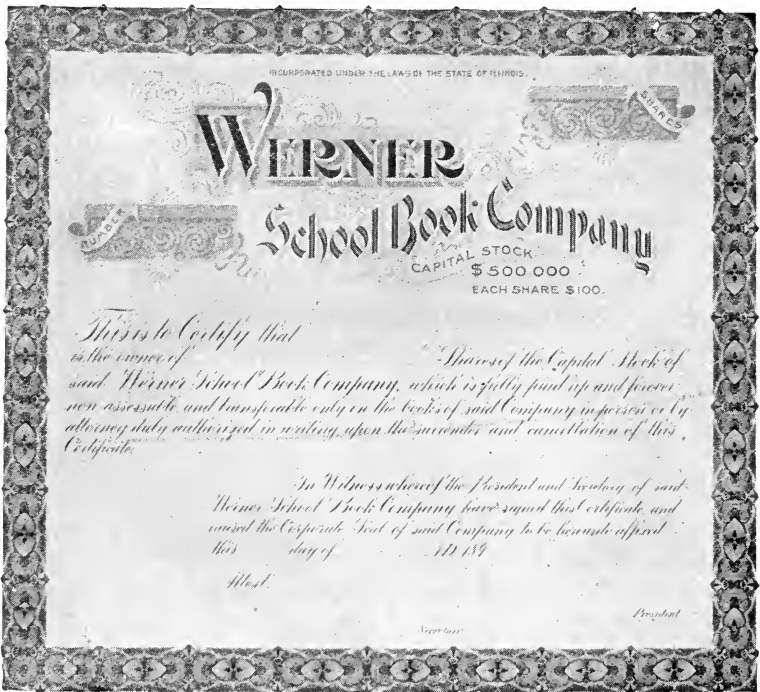 INCORPORATED UNDER THE LAWS OF THE STATE OF ILLINOIS.
SHARES
WERNER
NUMBER
School Book Company
CAPITAL STOCK
$500 000
EACH SHARE $100.
This is to Certify that
is the owner of Shares of the Capital Stock of
said Werner School Book Company, which is fully paid up and forever
non assessable and transferable only on the books of said Company in person or by
attorney duly authorized in writing, upon the surrender and cancellation of this
Certificate.
In Witness whereof the President and Secretary of said
Werner School Book Company have signed this Certificate and
caused the Corporate Seal of said Company to be hereunto affixed
this day of A.D. 189
Attest.
President
Secretary